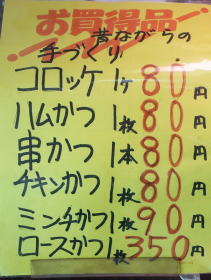 お買得品
昔ながらの
手づくり
コロッケ 1ヶ 80円
ハムかつ 1枚 80円
串かつ 1本 80円
チキンかつ 1枚 80円
ミンチかつ 1枚 90円
ロースかつ 1枚 350円